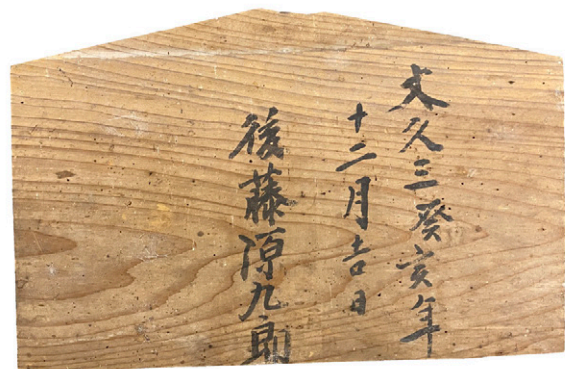 文久三癸亥年
十二月吉日
後藤源九郎